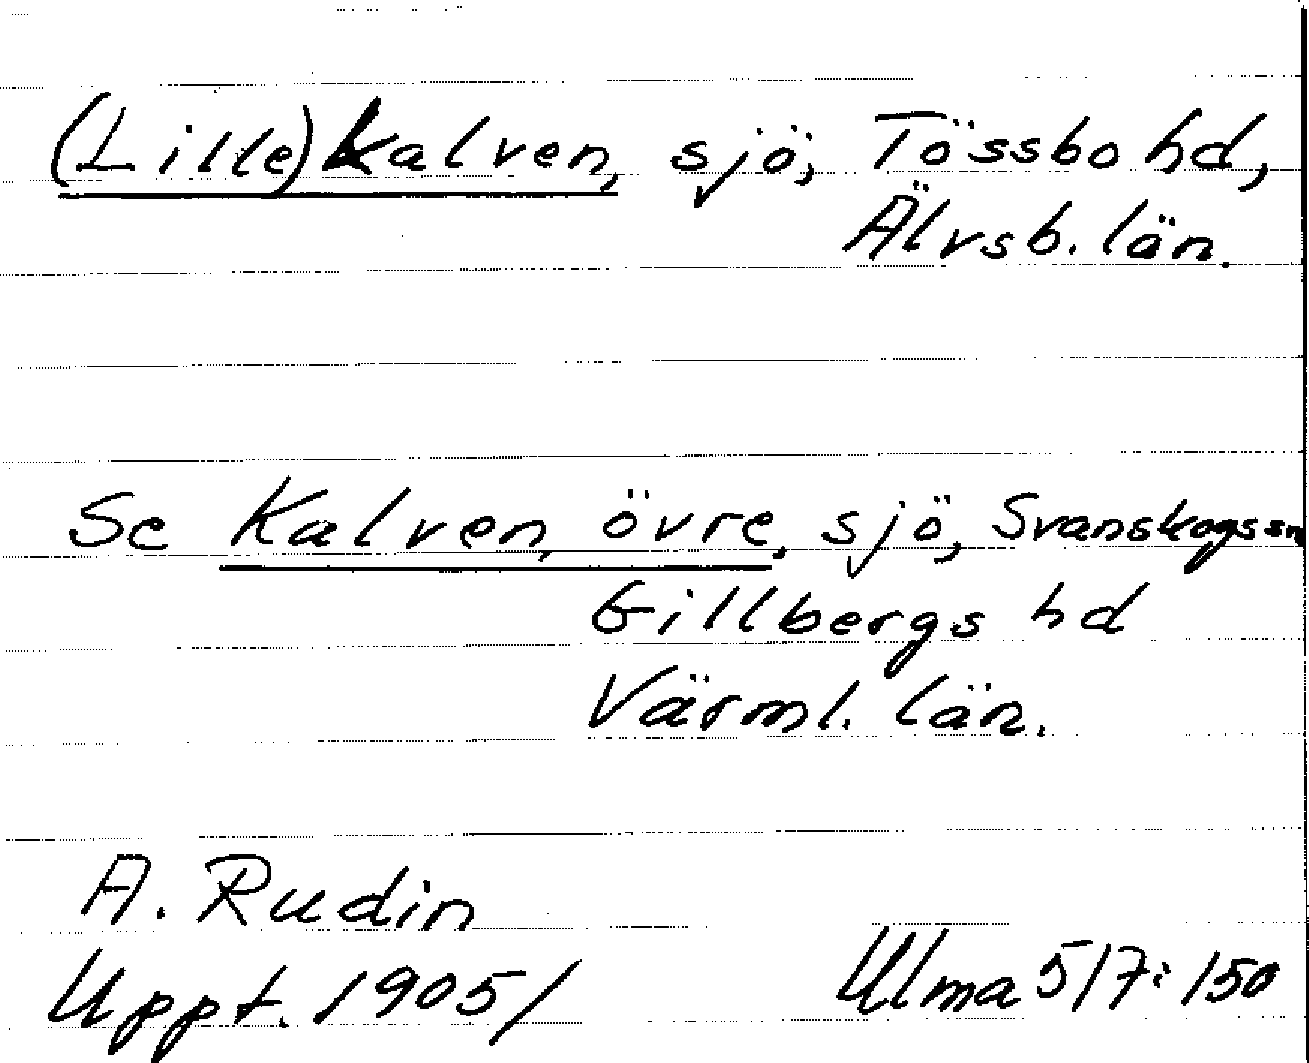 (Lille)Kalven, sjö, Tössbo hd,
Älvsb. län.
Se Kalven, övre, sjö, Svanskogs sn
Gillbergs hd
Värml. län.
A. Rudin
Uppt. 1905/
Ulma 517:150